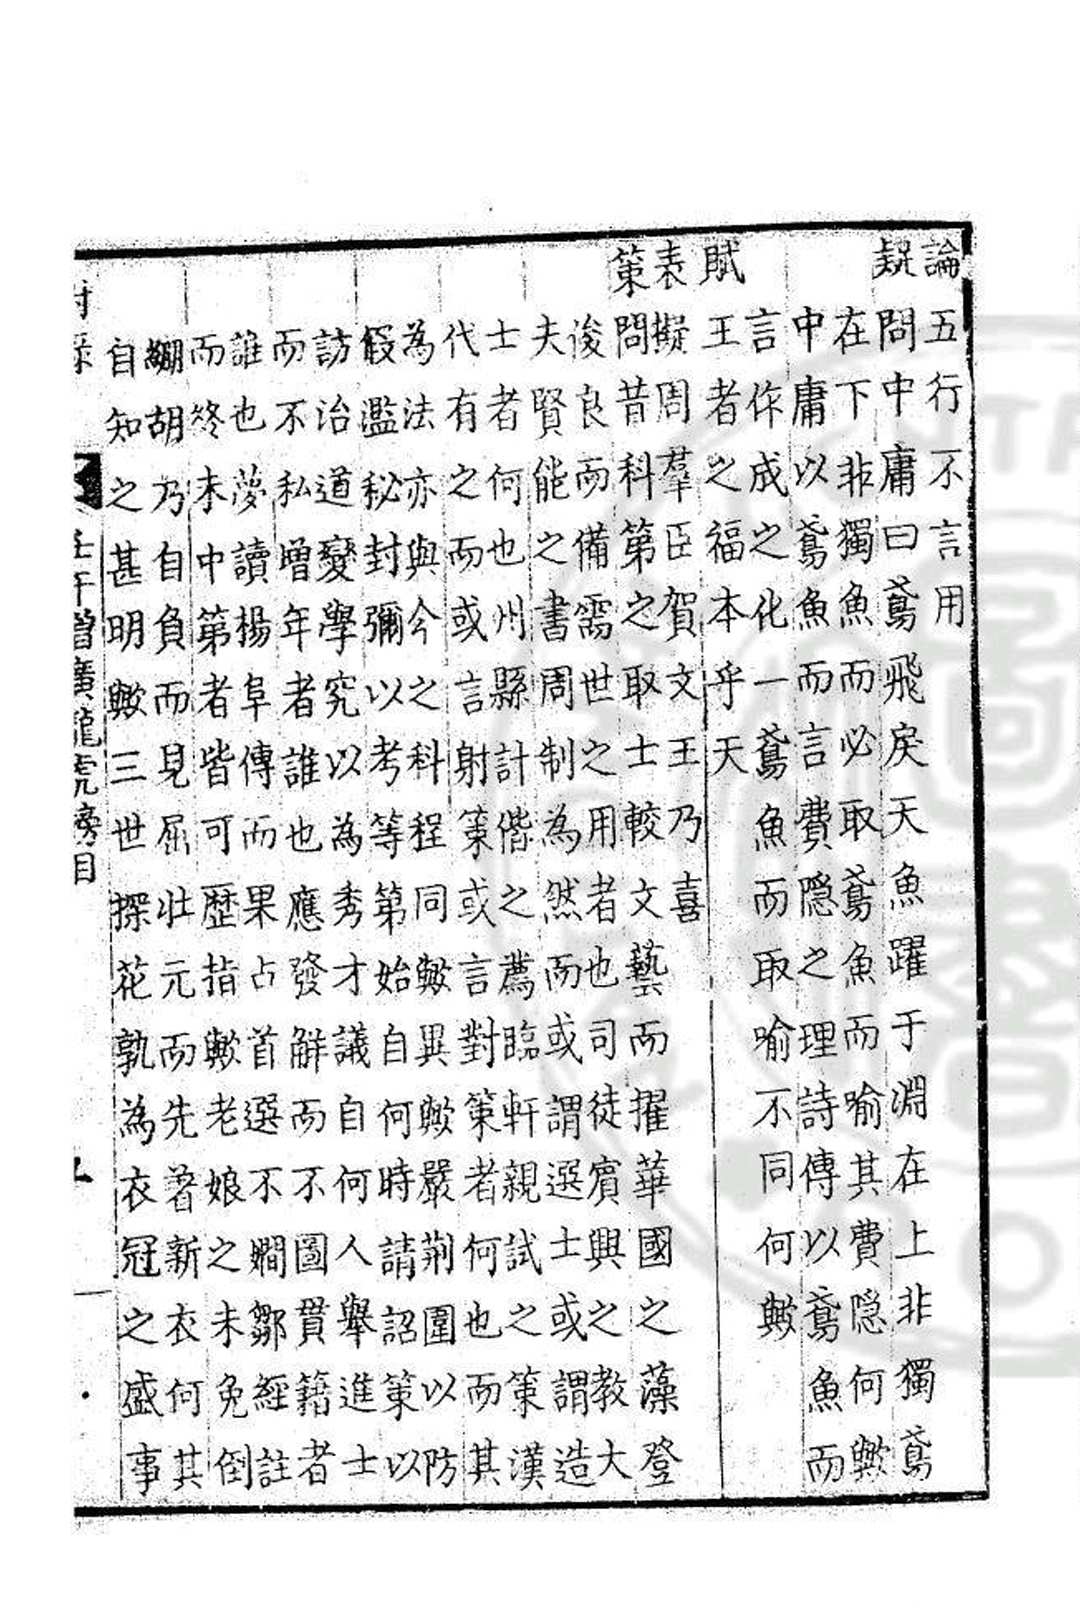 論 五行不言用
疑 問中庸曰鳶飛戾天魚躍于淵在上非獨鳶
在下非獨魚而必取鳶魚而喻其費隱何歟
中庸以鳶魚而言費隱之理詩傳以鳶魚而
言作成之化一鳶魚而取喻不同何歟
賦 王者之福本乎天
表 擬周羣臣賀文王乃喜
策 問昔科第之取士較文藝而擢華國之藻登
俊良而備需世之用者也司徒賓興之教大
夫賢能之書周制為然而或謂選士或謂造
士者何也州縣計偕之薦臨軒親試之策漢
代有之而或言射策或言對策者何也而其
為法亦與今之科程同歟異歟嚴荆圍以防
假濫秘封彌以考等第始自何時請詔策以
訪治道變學究以為秀才議自何人舉進士
而不私增年者誰也應發解而不圖貫籍者
誰也夢讀楊阜傳而果占首選不嫺鄒經註
而終未中第者皆可歷指歟老娘之未免倒
繃胡乃自負而見屈壯元而先著新衣何其
自知之甚明歟三世探花孰為衣冠之盛事
壬午增廣龍虎榜目